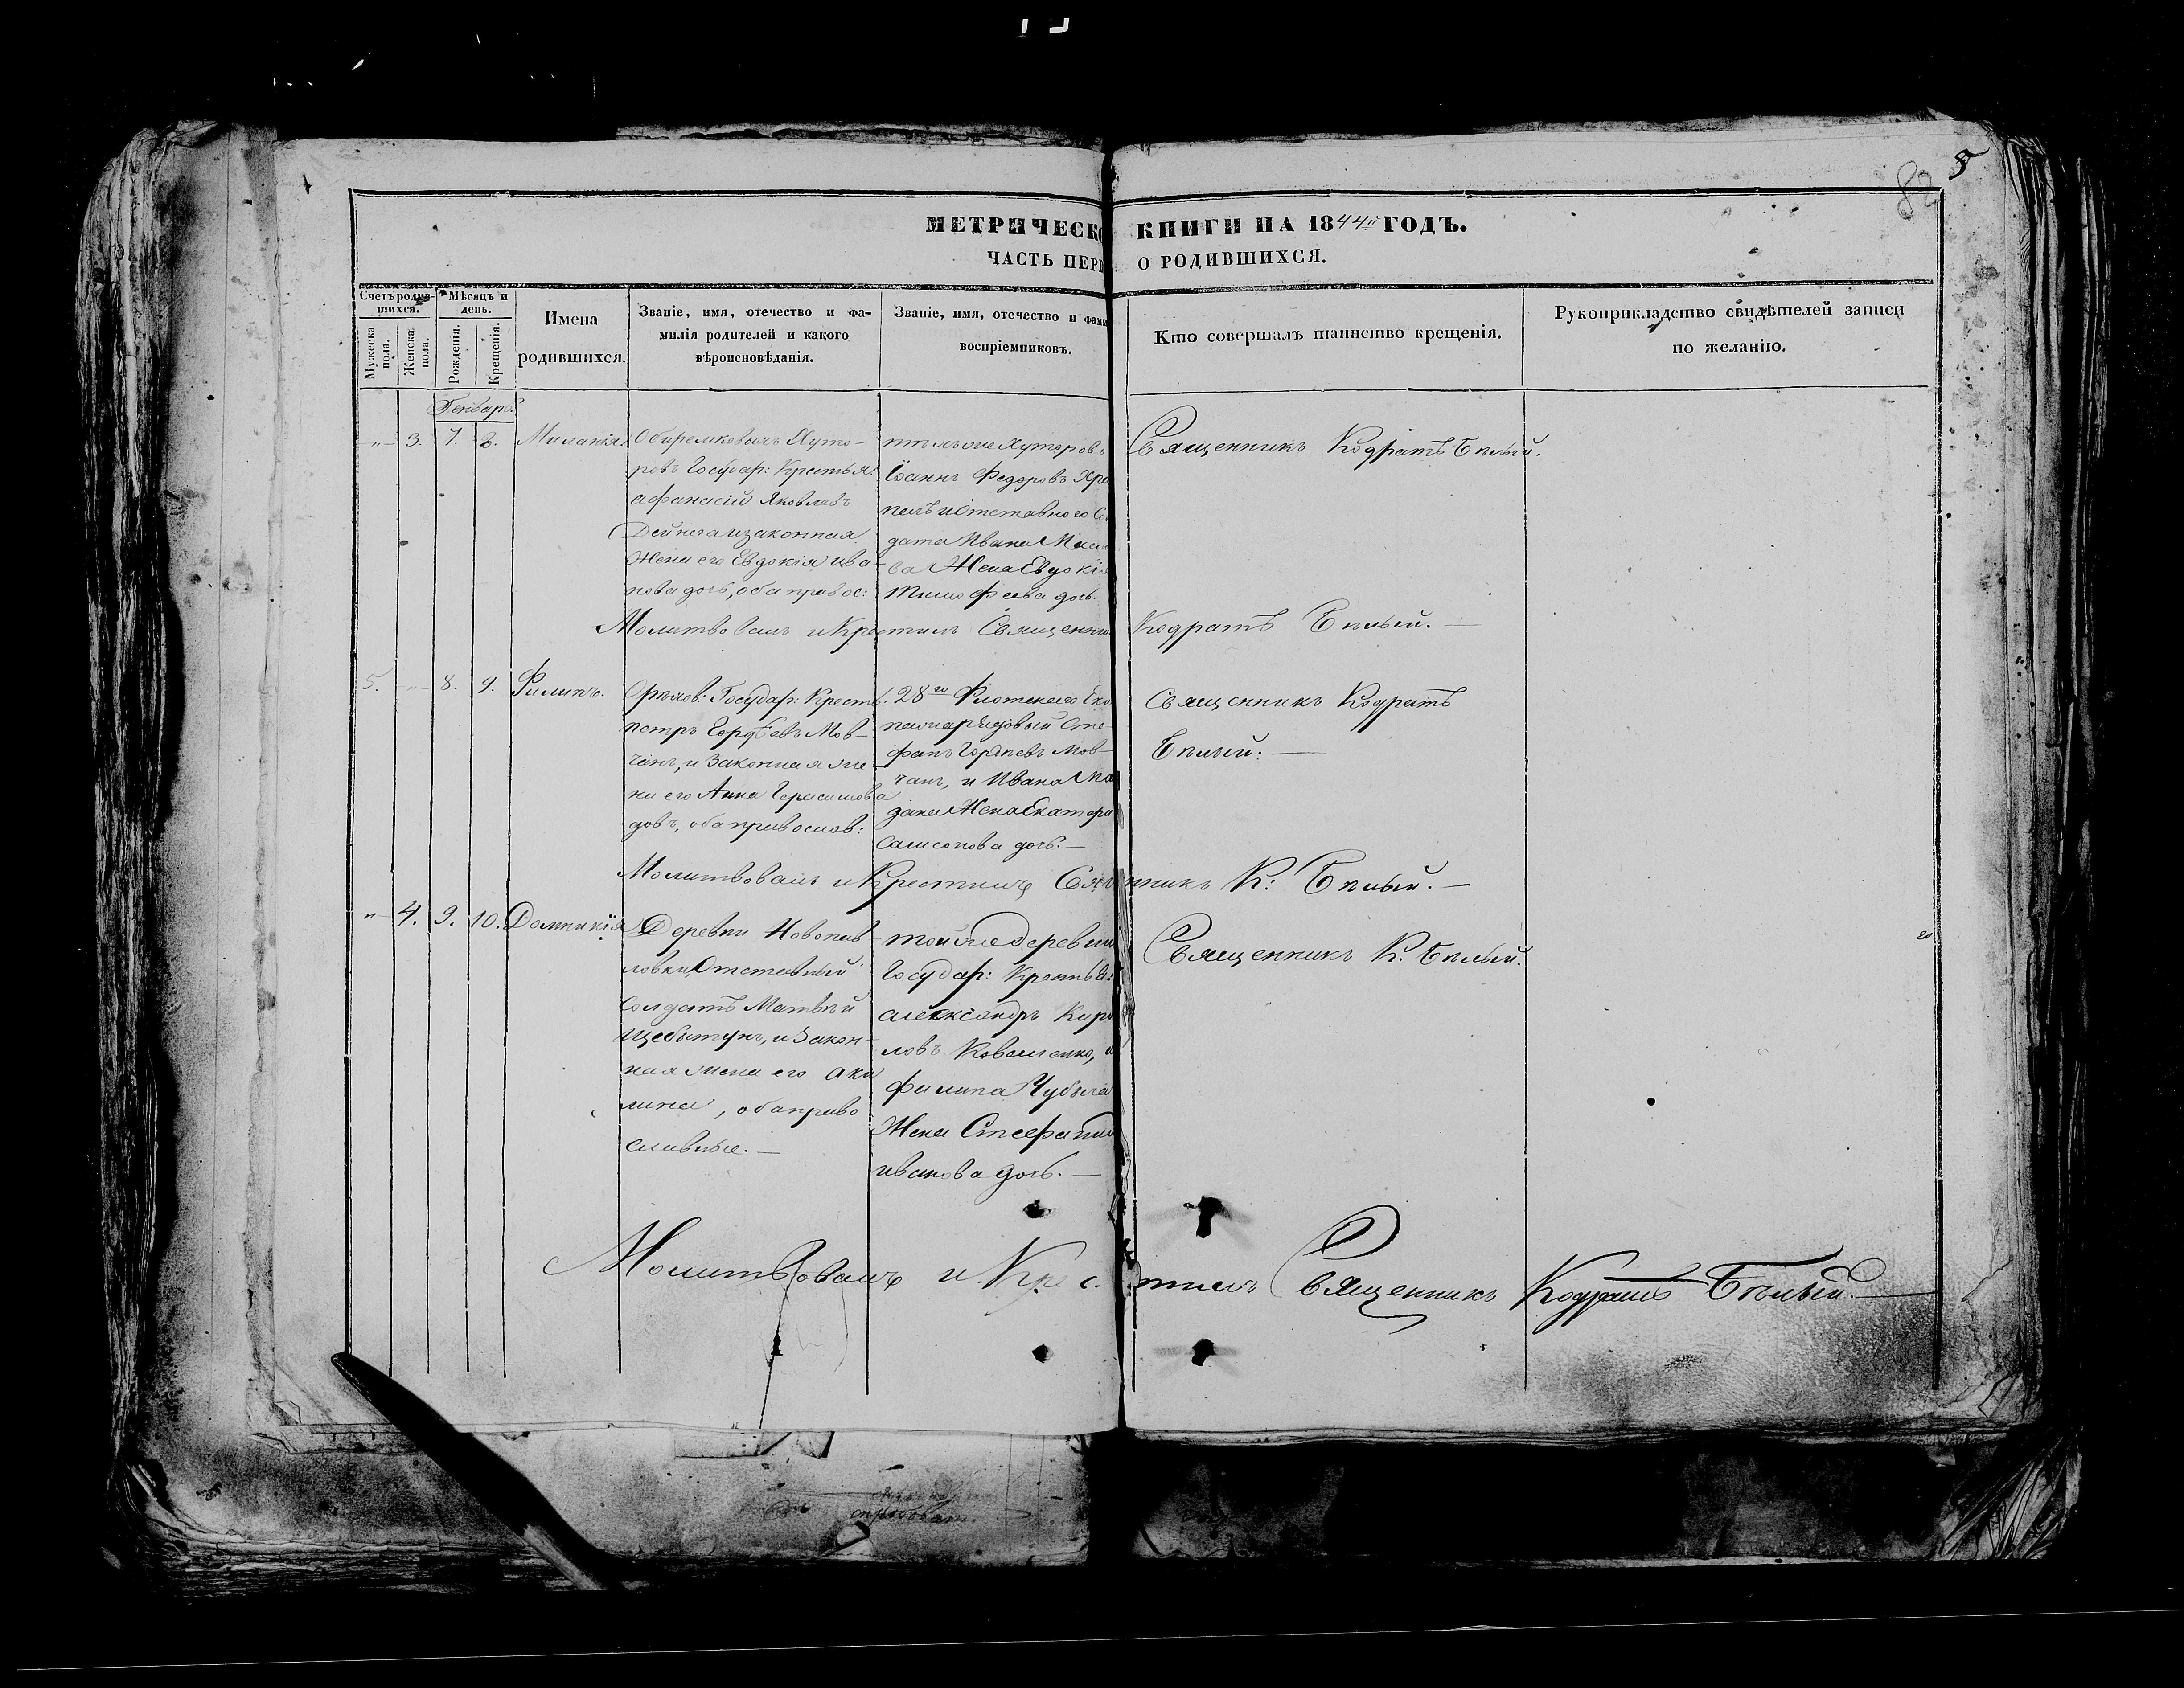 5
82
МЕТРИЧЕСКО КНИГИ НА 1844й ГОДЪ.
ЧАСТЬ ПЕРВ О РОДИВШИХСЯ.
Счетъ родив-
шихся.
Мужеска
пола.
Женска.
пола.
Мѣсяцъ и
день.
Рожденія.
Крещенія.
Имена
родившихся.
Званіе, имя, отечество и фа-
милія родителей и какого
вѣроисповѣданія.
Званіе, имя, отечество и фами
воспріемниковъ.
Кто совершалъ таинство крещенія.
Рукоприкладство свидѣтелей записи
по желанію.
Генварь
-"- 3. 7. 8. Миланія
Хуто-
ровъ Государ: Крестья:
Афанасій Яковлевъ
Дейнега и законная
Жена его Евдокія Ива-
нова дочь, оба правос:
тѣхъ же Хуторовъ
Іоаннъ Федоровъ
и Отставного Со
дата Ивана
ва Жена Евдокія
Тимофеева дочь.
Священникъ Кодратъ Бѣлый.
Молитвовалъ и Крестилъ Священни Кодратъ Бѣлый. —
5. -"- 8. 9. Филипъ.
Орѣхов: Государ: Крестья:
Петръ Мов-
чанъ, и Законная же
на его Анна Герасимова
дочь, оба правослов:
28го Флотскаго Еки
пажа Рядовый Сте
фанъ Мов-
чанъ, и Ивана
Жена Екатери
Самсонова дочь. —
Священникъ Кодратъ
Бѣлый. —
Молитвовалъ и Крестилъ Свящ нникъ К: Бѣлый. —
-"- 4. 9. 10. Домникія
Деревни Новопав
ловки, Отставный
Солдатъ Матвѣй
Щебитунъ, и Закон-
ная жена его Аки
лина, оба право
славные. —
той же деревни
Государ: Крестья:
Александръ Кири
ловъ Коваленко, и
Филипа
Жена Стефани
Иванова дочь. —
Священникъ К. Бѣлый.
Молитвовалъ и Крес. тилъ Священникъ Кодратъ Бѣлый. —